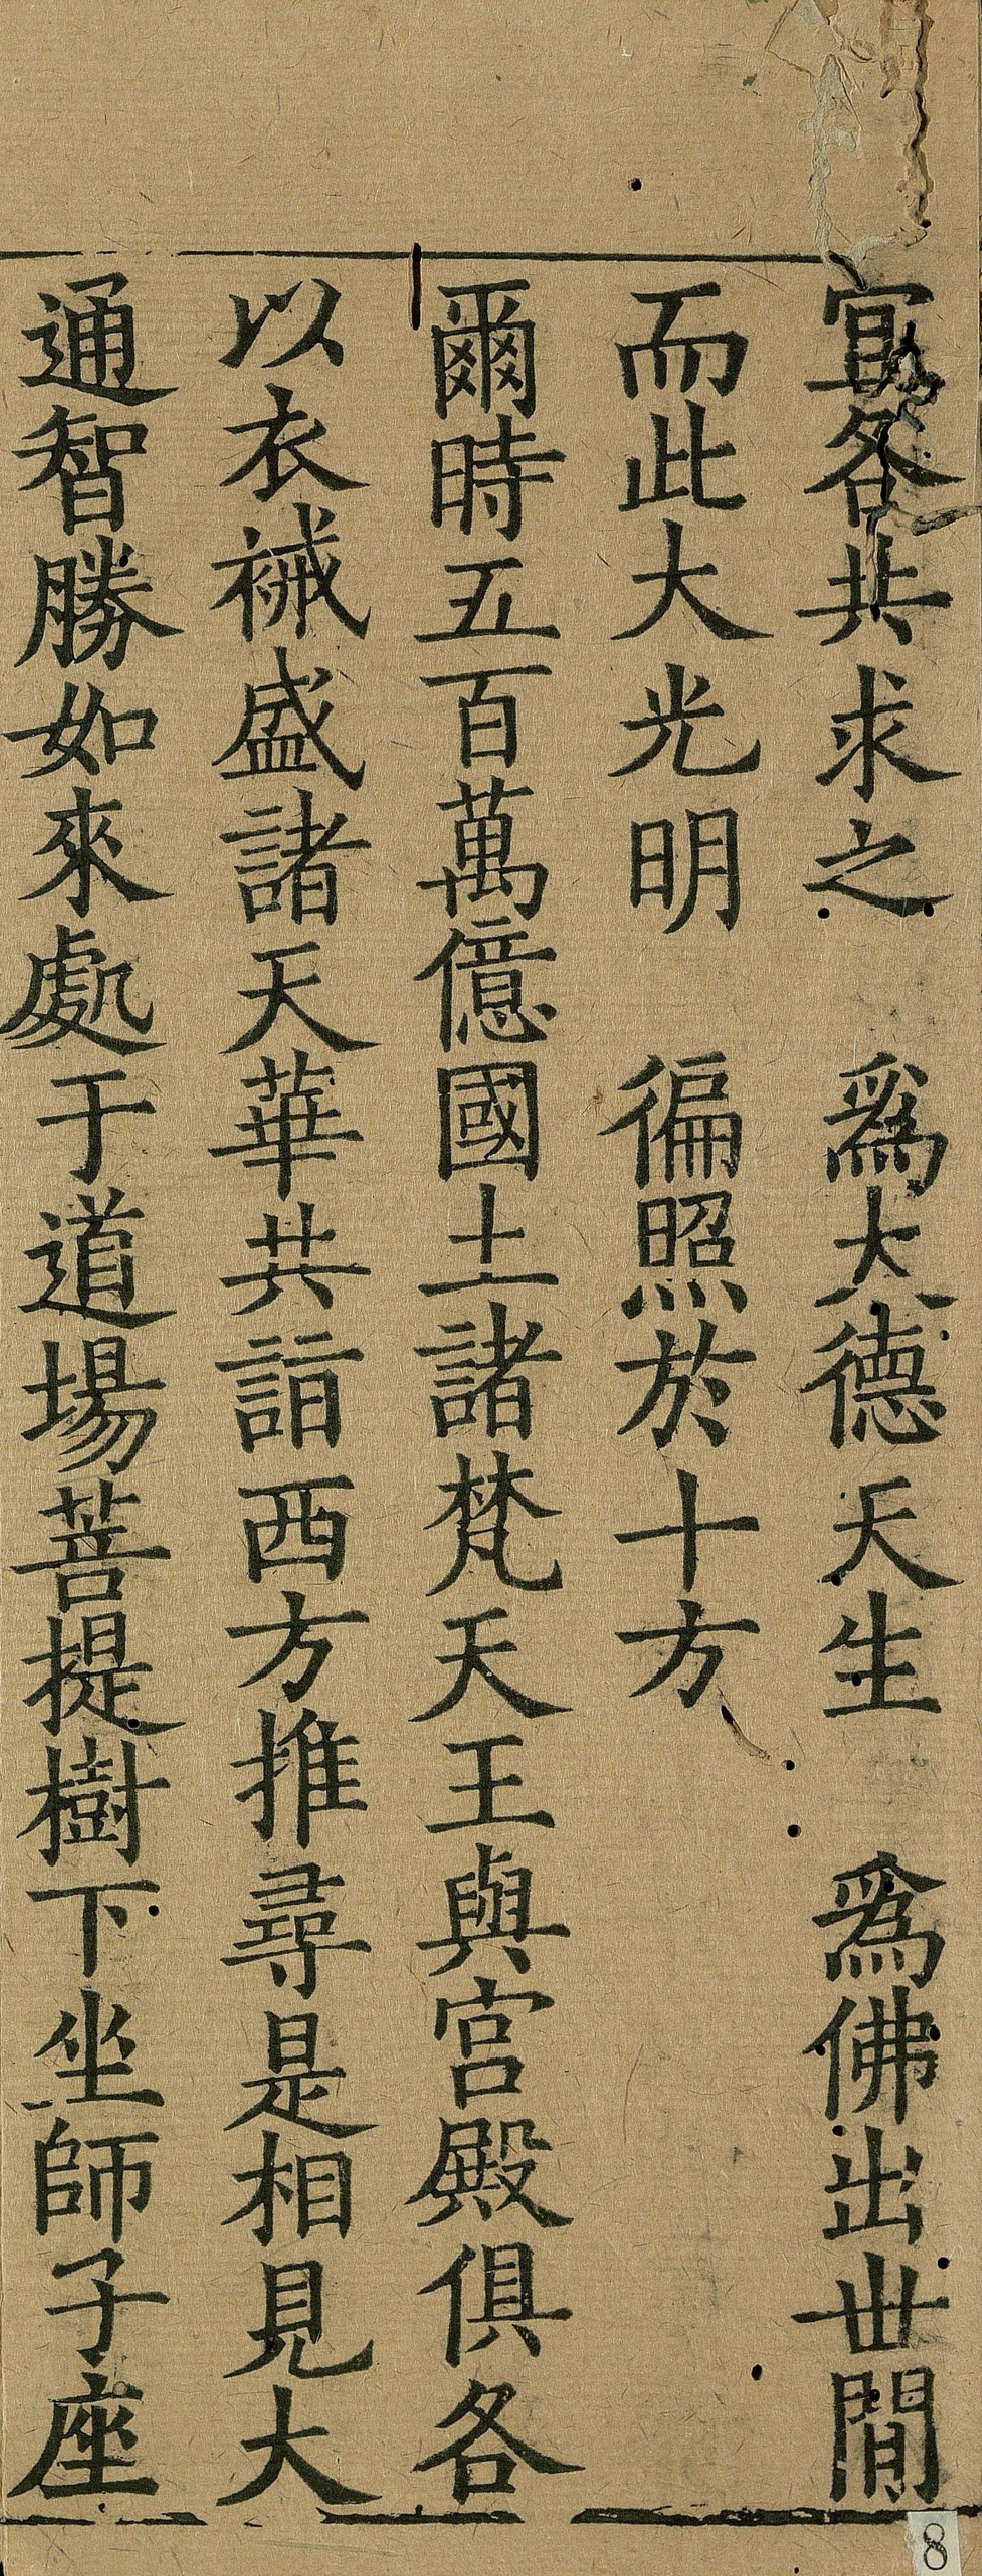 宜各共求之　爲大德天生　爲佛出世間
而此大光明　徧照於十方
爾時五百萬億國土諸梵天王與宮殿俱各
以衣祴盛諸天華共詣西方推尋是相見大
通智勝如來處于道場菩提樹下坐師子座
8